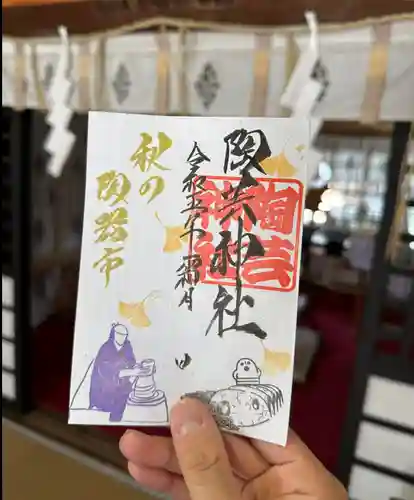 陶芸神社
令和五年 霜月 日
秋の
陶器市
陶芸
神社